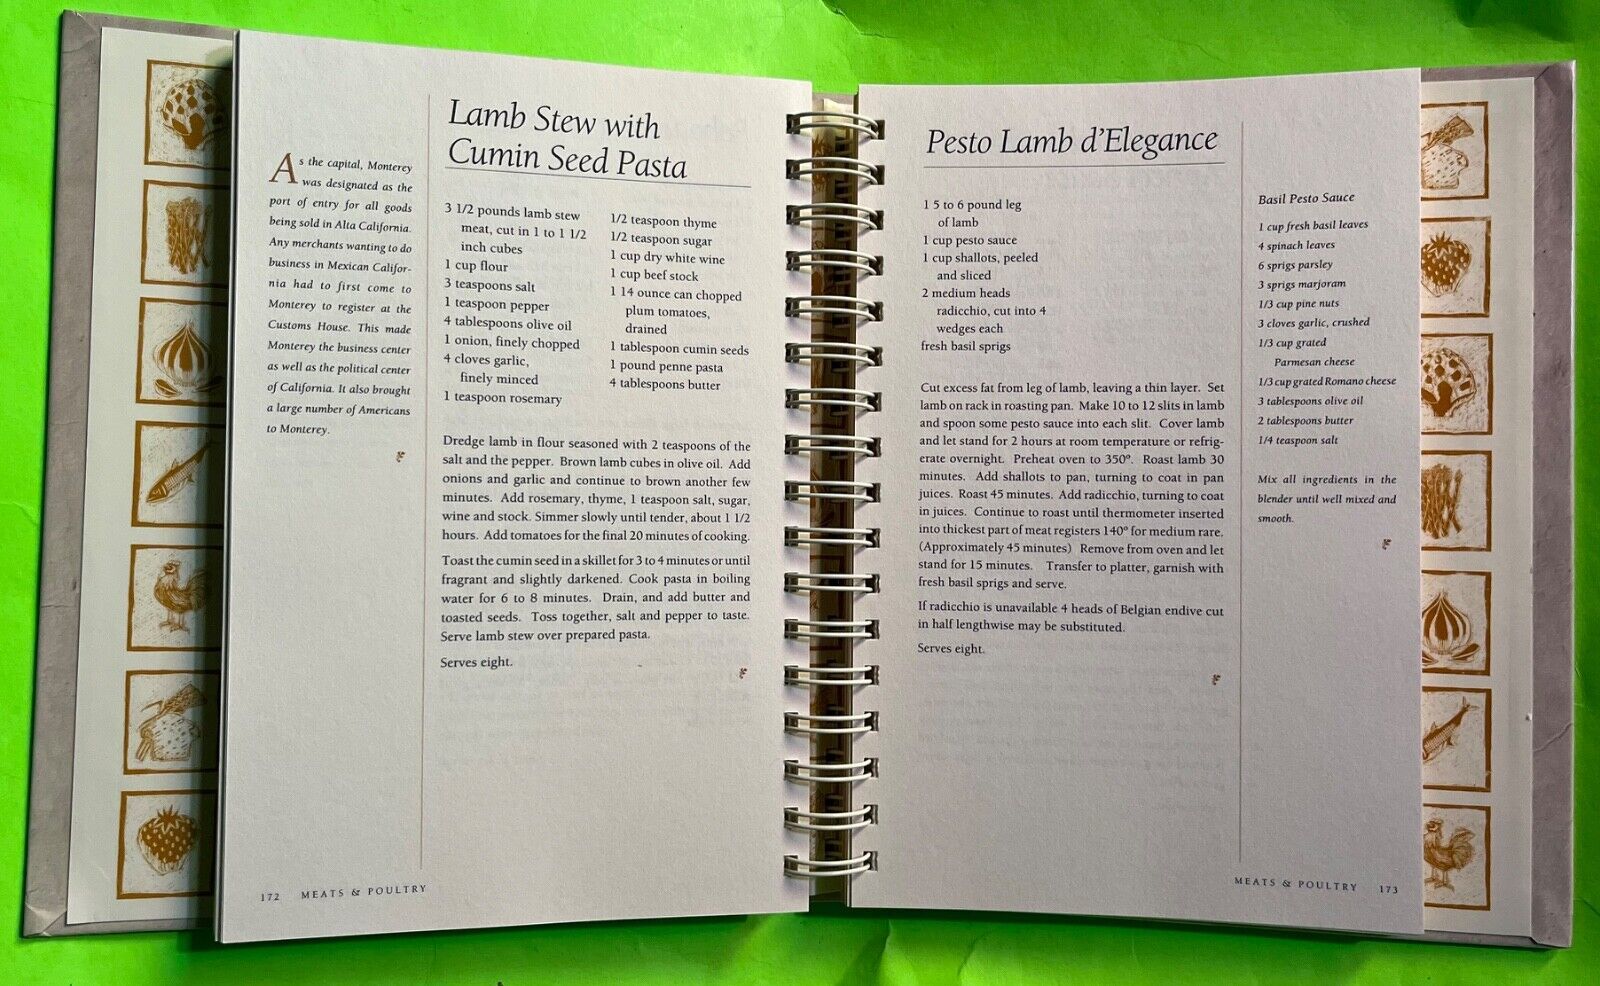 As the capital, Monterey
was designated as the
port of entry for all goods
being sold in Alta California.
Any merchants wanting to do
business in Mexican Califor-
nia had to first come to
Monterey to register at the
Customs House. This made
Monterey the business center
as well as the political center
of California. It also brought
a large number of Americans
to Monterey.
Lamb Stew with
Cumin Seed Pasta
3 1/2 pounds lamb stew
meat, cut in 1 to 1 1/2
inch cubes
1 cup flour
3 teaspoons salt
1 teaspoon pepper
4 tablespoons olive oil
1 onion, finely chopped
4 cloves garlic,
finely minced
1 teaspoon rosemary
1/2 teaspoon thyme
1/2 teaspoon sugar
1 cup dry white wine
1 cup beef stock
1 14 ounce can chopped
plum tomatoes,
drained
1 tablespoon cumin seeds
1 pound penne pasta
4 tablespoons butter
Dredge lamb in flour seasoned with 2 teaspoons of the
salt and the pepper. Brown lamb cubes in olive oil. Add
onions and garlic and continue to brown another few
minutes. Add rosemary, thyme, 1 teaspoon salt, sugar,
wine and stock. Simmer slowly until tender, about 1 1/2
hours. Add tomatoes for the final 20 minutes of cooking.
Toast the cumin seed in a skillet for 3 to 4 minutes or until
fragrant and slightly darkened. Cook pasta in boiling
water for 6 to 8 minutes. Drain, and add butter and
toasted seeds. Toss together, salt and pepper to taste.
Serve lamb stew over prepared pasta.
Serves eight.
172 MEATS & POULTRY
Pesto Lamb d'Elegance
1 5 to 6 pound leg
of lamb
1 cup pesto sauce
1 cup shallots, peeled
and sliced
2 medium heads
radicchio, cut into 4
wedges each
fresh basil sprigs
Cut excess fat from leg of lamb, leaving a thin layer. Set
lamb on rack in roasting pan. Make 10 to 12 slits in lamb
and spoon some pesto sauce into each slit. Cover lamb
and let stand for 2 hours at room temperature or refrig-
erate overnight. Preheat oven to 350º. Roast lamb 30
minutes. Add shallots to pan, turning to coat in pan
juices. Roast 45 minutes. Add radicchio, turning to coat
in juices. Continue to roast until thermometer inserted
into thickest part of meat registers 140º for medium rare.
(Approximately 45 minutes) Remove from oven and let
stand for 15 minutes. Transfer to platter, garnish with
fresh basil sprigs and serve.
If radicchio is unavailable 4 heads of Belgian endive cut
in half lengthwise may be substituted.
Serves eight.
Basil Pesto Sauce
1 cup fresh basil leaves
4 spinach leaves
6 sprigs parsley
3 sprigs marjoram
1/3 cup pine nuts
3 cloves garlic, crushed
1/3 cup grated
Parmesan cheese
1/3 cup grated Romano cheese
3 tablespoons olive oil
2 tablespoons butter
1/4 teaspoon salt
Mix all ingredients in the
blender until well mixed and
smooth.
MEATS & POULTRY 173